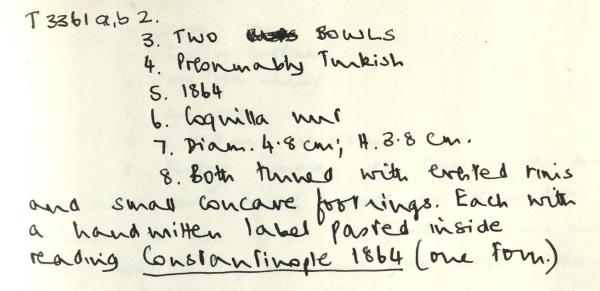 T 3361 a,b 2.
3. TWO BOWLS
4. Presumably Turkish
5. 1864
6. Coquilla nut
7. Diam. 4.8 cm; H. 3.8 cm.
8. Both turned with everted rims
and small concave footrings. Each with
a handwritten label pasted inside
reading Constantinople 1864 (one torn.)